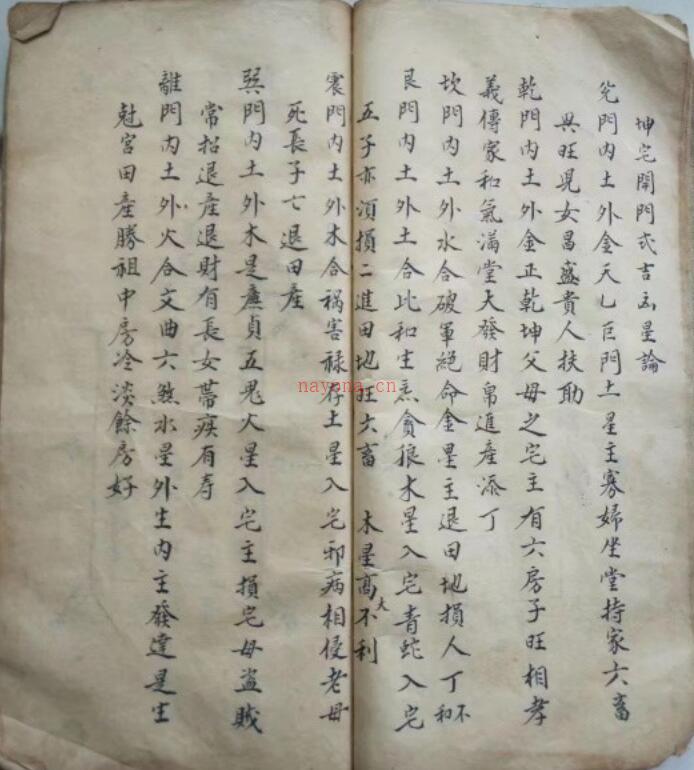 坤宅開門式吉凶星論
兌門內土外金天乙巨門土星主寡婦坐堂持家六畜
興旺兒女昌盛貴人扶助
乾門內土外金正乾坤父母之宅主有六房子旺相孝
義傳家和氣滿堂大發財帛進產添丁
坎門內土外水合破軍絕命金星主退田地損人丁不和
艮門內土外土合比和生炁貪狼木星入宅青蛇入宅
五子亦須損二進田地旺六畜 木星高大不利
震門內土外木合禍害祿存土星入宅邪病相侵老母
死長子亡退田產
巽門內土外木是廉貞五鬼火星入宅主損宅母盜賊
常招退產退財有長女帶疾有寿
離門內土外火合文曲六煞水星外生內主發達是生
尅宮田產勝祖中房冷淡餘房好
nayona.cn